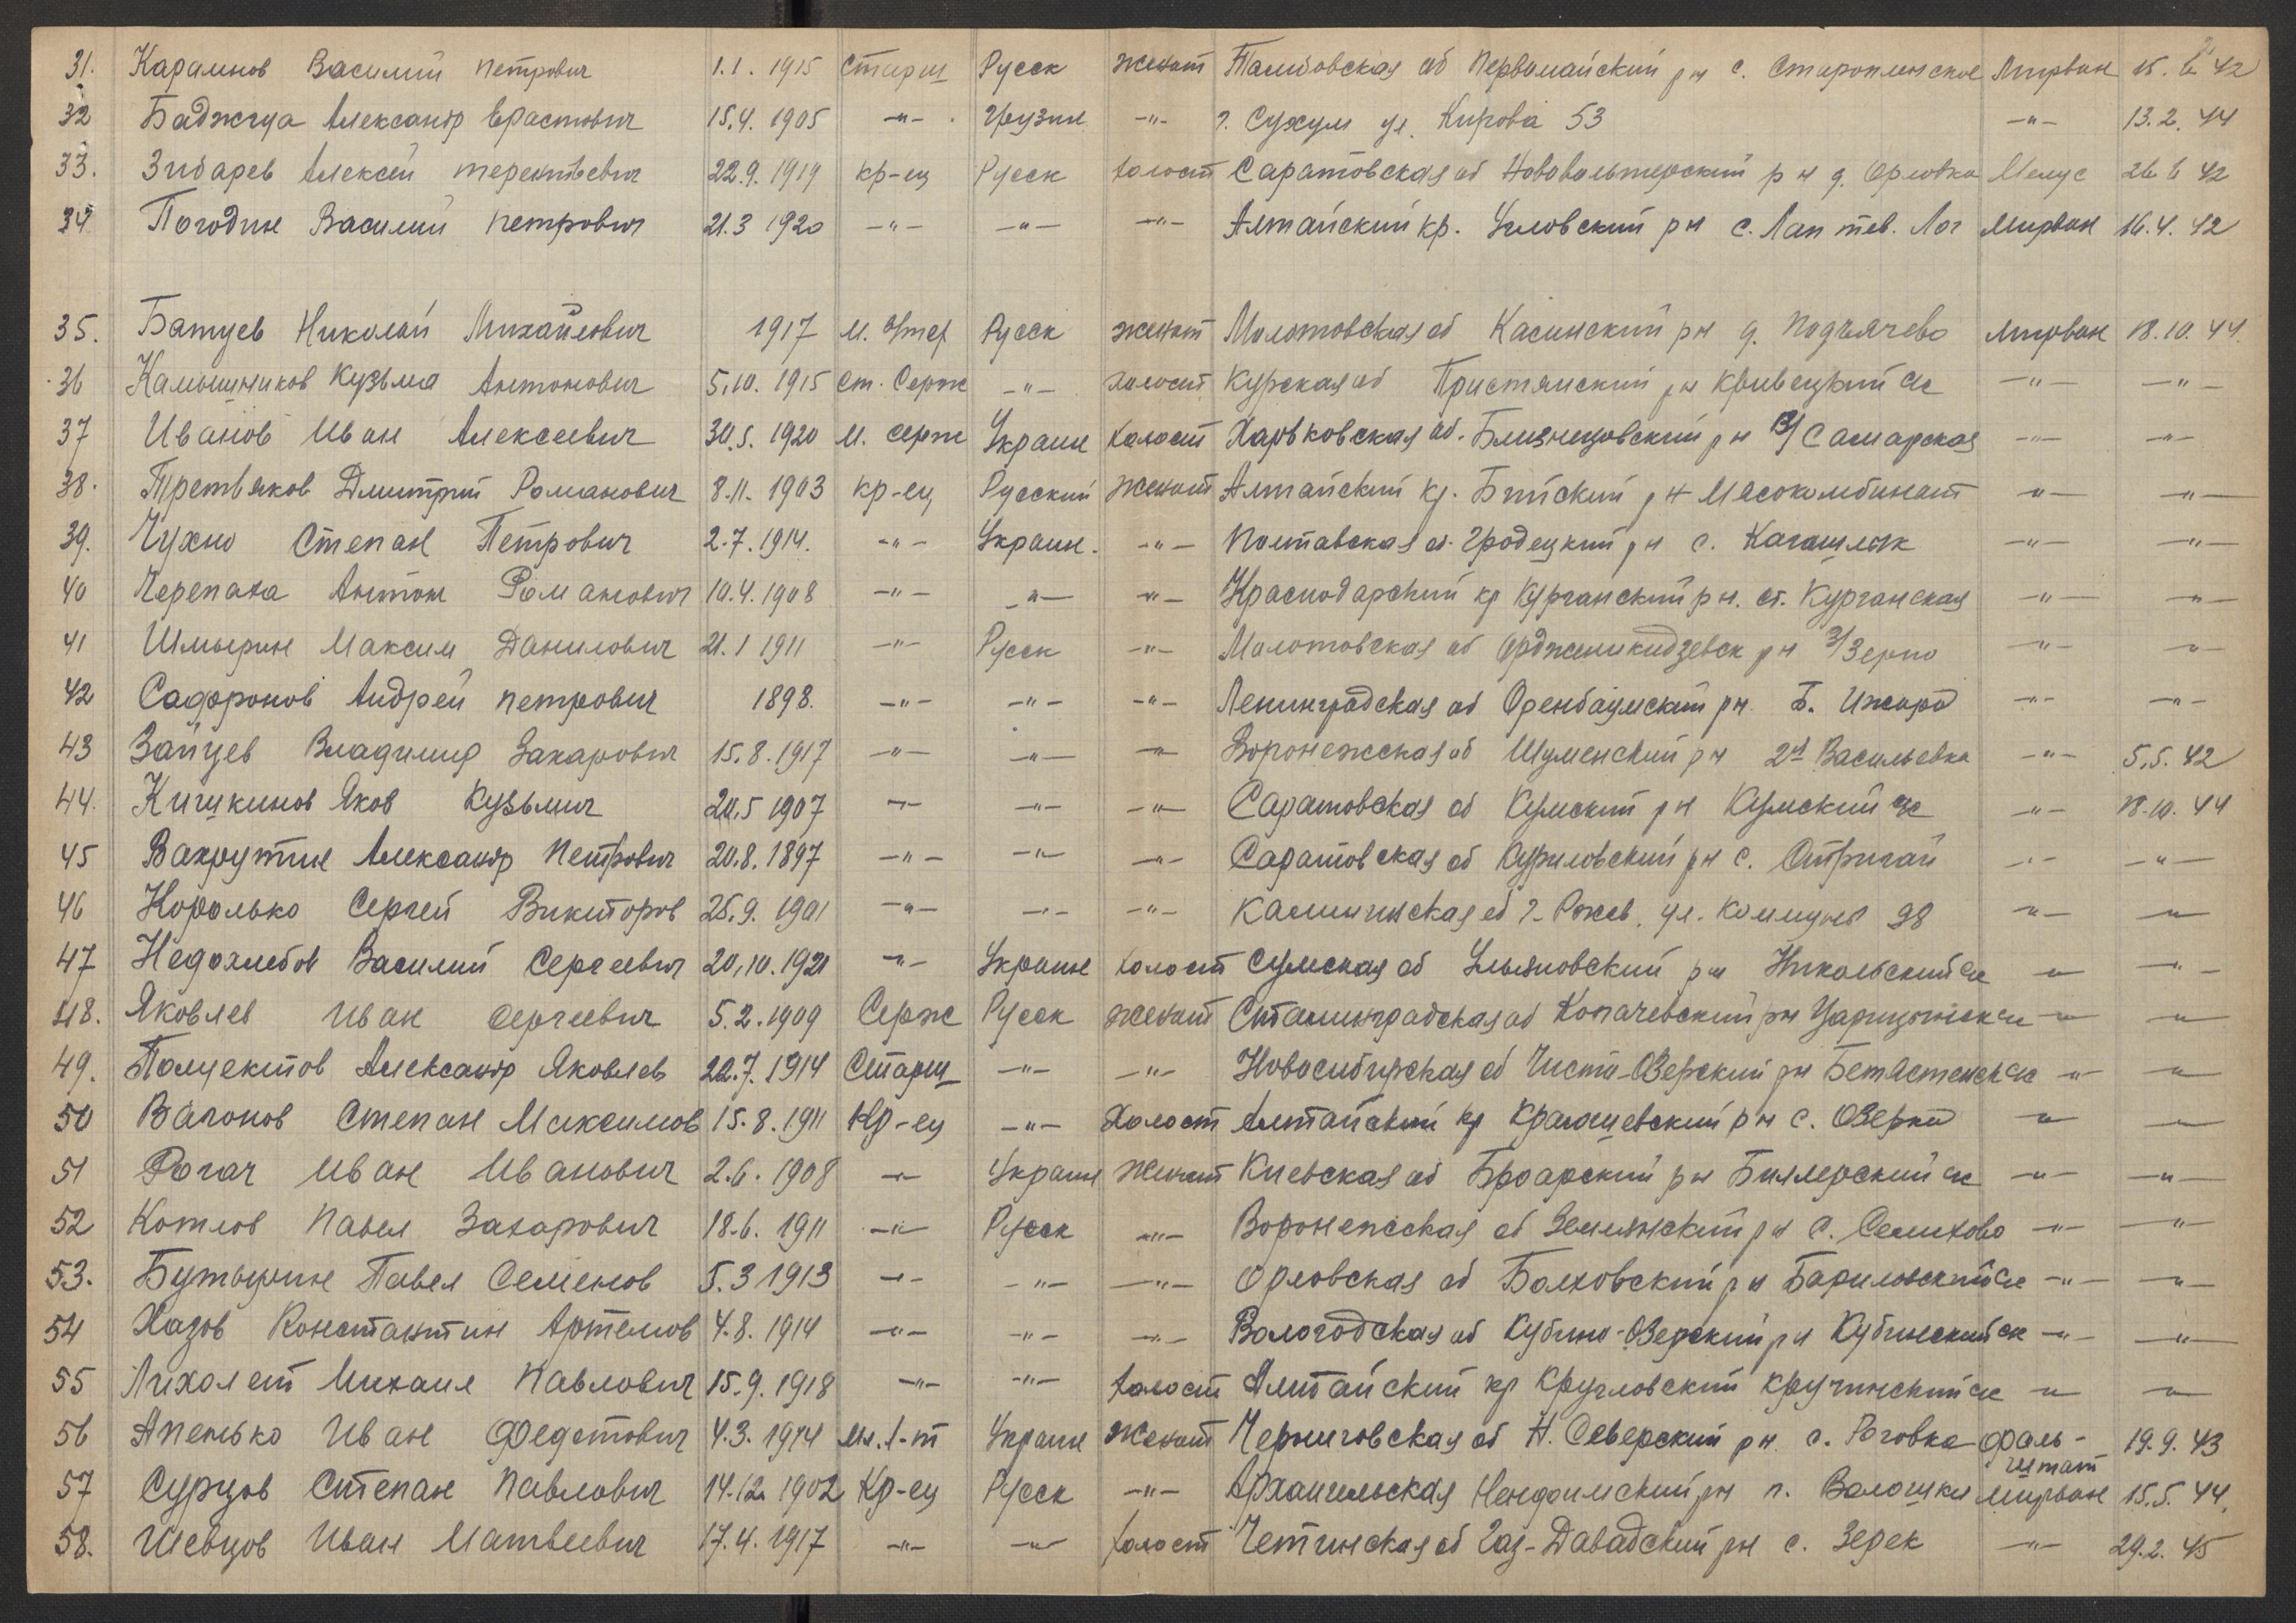 31. Карамнов Василий Петрович 1.1. 1915 Старш Русск женат Тамбовская об Первомайский рн с. Мирван 15. 6 42
32 Баджгуа Александр Ерастович 15.4. 1905 -"- Грузин -"- г. Сухум ул. Кирова 53 -"- 13.2. 44
33. Зибарев Алексей терентьевич 22.9. 1919 кр-ец Русск холост Саратовская об рн д. Орловка 26 6 42
34 Погодин Василий петрович 21.3 1920 -"- -"- -"- Алтайский кр. Угловский рн с. Лаптев. Лог Мирван 16.4. 42
35. Батуев Николай Михайлович 1917 Русск женат Молотовская об рн д. Подъячево Мирван 18.10. 44.
36 Камышников Кузьма Антонович 5.10. 1915 Ст. Серж -"- холост Курская об Пристянский рн Кривецкий сс -"- -"-
37 Иванов Иван Алексеевич 30.5. 1920 М. серж Украин холост Харьковская об. Близнецовский рн Самарская -"- -"-
38. Третьяков Дмитрий Романович 8.11. 1903 кр-ец Русский женат Алтайский кр. Бийский рн Мясокомбинат -"- -"-
39. Чухно Степан Петрович 2.7. 1914. -"- Украин. -"- Полтавская об. Гродецкий рн с. -"- -"-
40 Черепаха Антон Романович 10.4. 1908 -"- -"- -"- Краснодарский кр Курганский рн. ст. Курганская -"- -"-
41 Шмырин Максим Данилович 21.1 1911 -"- Русск -"- Молотовская об Орджоникидзевск рн з/Зерно -"- -"-
42 Сафронов Андрей петрович 1898. -"- -"- -"- Ленинградская об Оренбаумский рн Б. Ижора -"- -"-
43 Зайцев Владимир Захарович 15.8. 1917 -"- -"- -"- Воронежская об рн 2я Васильевка -"- 5.5. 42
44. Кишкинов Яков Кузьмич 20.5 1907 -"- -"- -"- Саратовская об рн сс -"- 18.10. 44
45 Вахрутин Александр Петрович 20.8. 1897 -"- -"- -"- Саратовская об Куриловский рн с. -"- -"-
46 Королько Сергей Викторов 25.9. 1901 -"- -"- -"- Калининская об г. Ржев. ул. Коммуны 98 -"- -"-
47 Недохлебов Василий Сергеевич 20.10. 1921 -"- Украин холост Сумская об Ульяновский рн Никольский сс -"- -"-
48. Яковлев Иван Сергеевич 5.2. 1909 Серж Русск женат Сталинградская об рн сс -"- -"-
49. Полуектов Александр Яковлев 22.7. 1914 Старш -"- -"- Новосибирская об Чисто-Озерский рн сс -"- -"-
50 Вагонов Степан Максимов 15.8. 1911 Кр-ец -"- Холост Алтайский кр рн с. Озерки -"- -"-
51 Рогач Иван Иванович 2.6. 1908 -"- Украин Женат Киевская об рн сс -"- -"-
52 Котлов Павел Захарович 18.6. 1911 -"- Русск -"- Воронежская об Землянский рн с. Семихово -"- -"-
53. Бутырин Павел Семенов 5.3 1913 -"- -"- -"- Орловская об Болховский рн сс -"- -"-
54 Хазов Константин Артемов 4.8. 1914 -"- -"- -"- Вологодская об Кубино-Озерский рн Кубинский сс -"- -"-
55 Лихолет Михаил Павлович 15.9. 1918 -"- -"- холост Алтайский кр Кругловский сс -"- -"-
56 Апенько Иван Федотович 4.3. 1914 мл. л-т Украин женат Черниговская об Н. Северский рн с. Роговка Фаль- 19.9. 43
штат
57 Сурцов Степан Павлович 14.12. 1902 Кр-ец Русск -"- Архангельская рн п. Волошки Мирван 15.5. 44.
58. Шевцов Иван Матвеевич 17.4. 1917 -"- -"- холост Четинская об рн с. Зерек -"- 29.2. 45